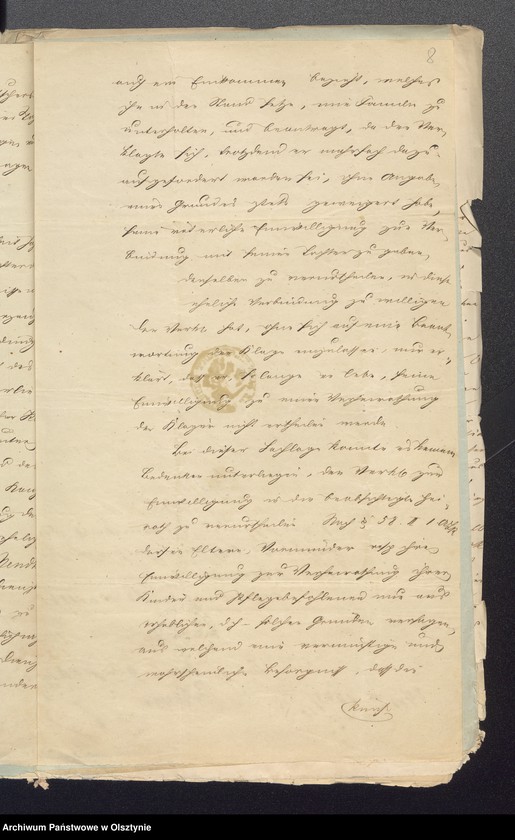 8
auch ein Einkommen bezieht, welches
ihn in den Stand setze, eine Familie zu
unterhalten, und beantragt, da der Ver-
klagte sich, trotzdem er mehrfach dazu
aufgefordert worden sei, ohne Angabe
eines Grundes stets geweigert habe,
seine väterliche Einwilligung zur Ver-
bindung mit seiner Tochter zu geben,
denselben zu verurtheilen, in diese
eheliche Verbindung zu willigen
Der Verkl. hat, ohne sich auf eine Beant-
wortung der Klage einzulassen, nur er-
klärt, daß er, so lange er lebe, seine
Einwilligung zu einer Verheirathung
der Klägerin nicht ertheilen werde
Bei dieser Sachlage konnte es keinem
Bedenken unterliegen, den Verkl. zur
Einwilligung in die beabsichtigte Hei-
rath zu verurtheilen Nach § 58. II 1
dürfen Eltern, Vormünder ihre
Einwilligung zur Verheirathung ihrer
Kinder und Pflegebefohlenen nur aus
erheblichen, d. h. solchen Gründen versagen,
aus welchen eine vernünftige und
wahrscheinliche Besorgniß, daß der
Archiwum Państwowe w Olsztynie